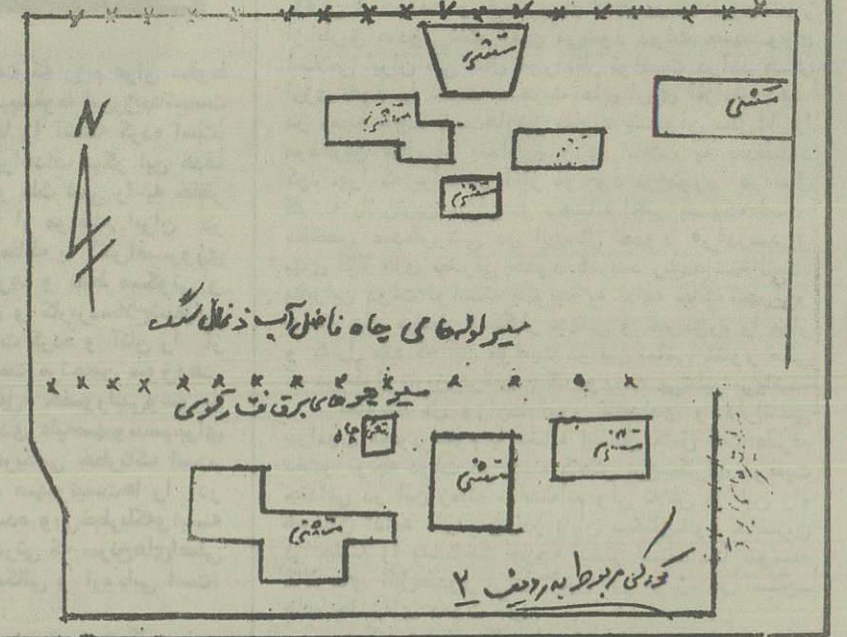 مستثنی
مستثنی
مستثنی
مستثنی
N
مسیر لوله های چاه فاضل آب ذغال سنگ
مسیر جوهای برق فشار قوی
مستثنی
چاه
مستثنی
مستثنی
مستثنی
کروکی مربوط به ردیف ۳